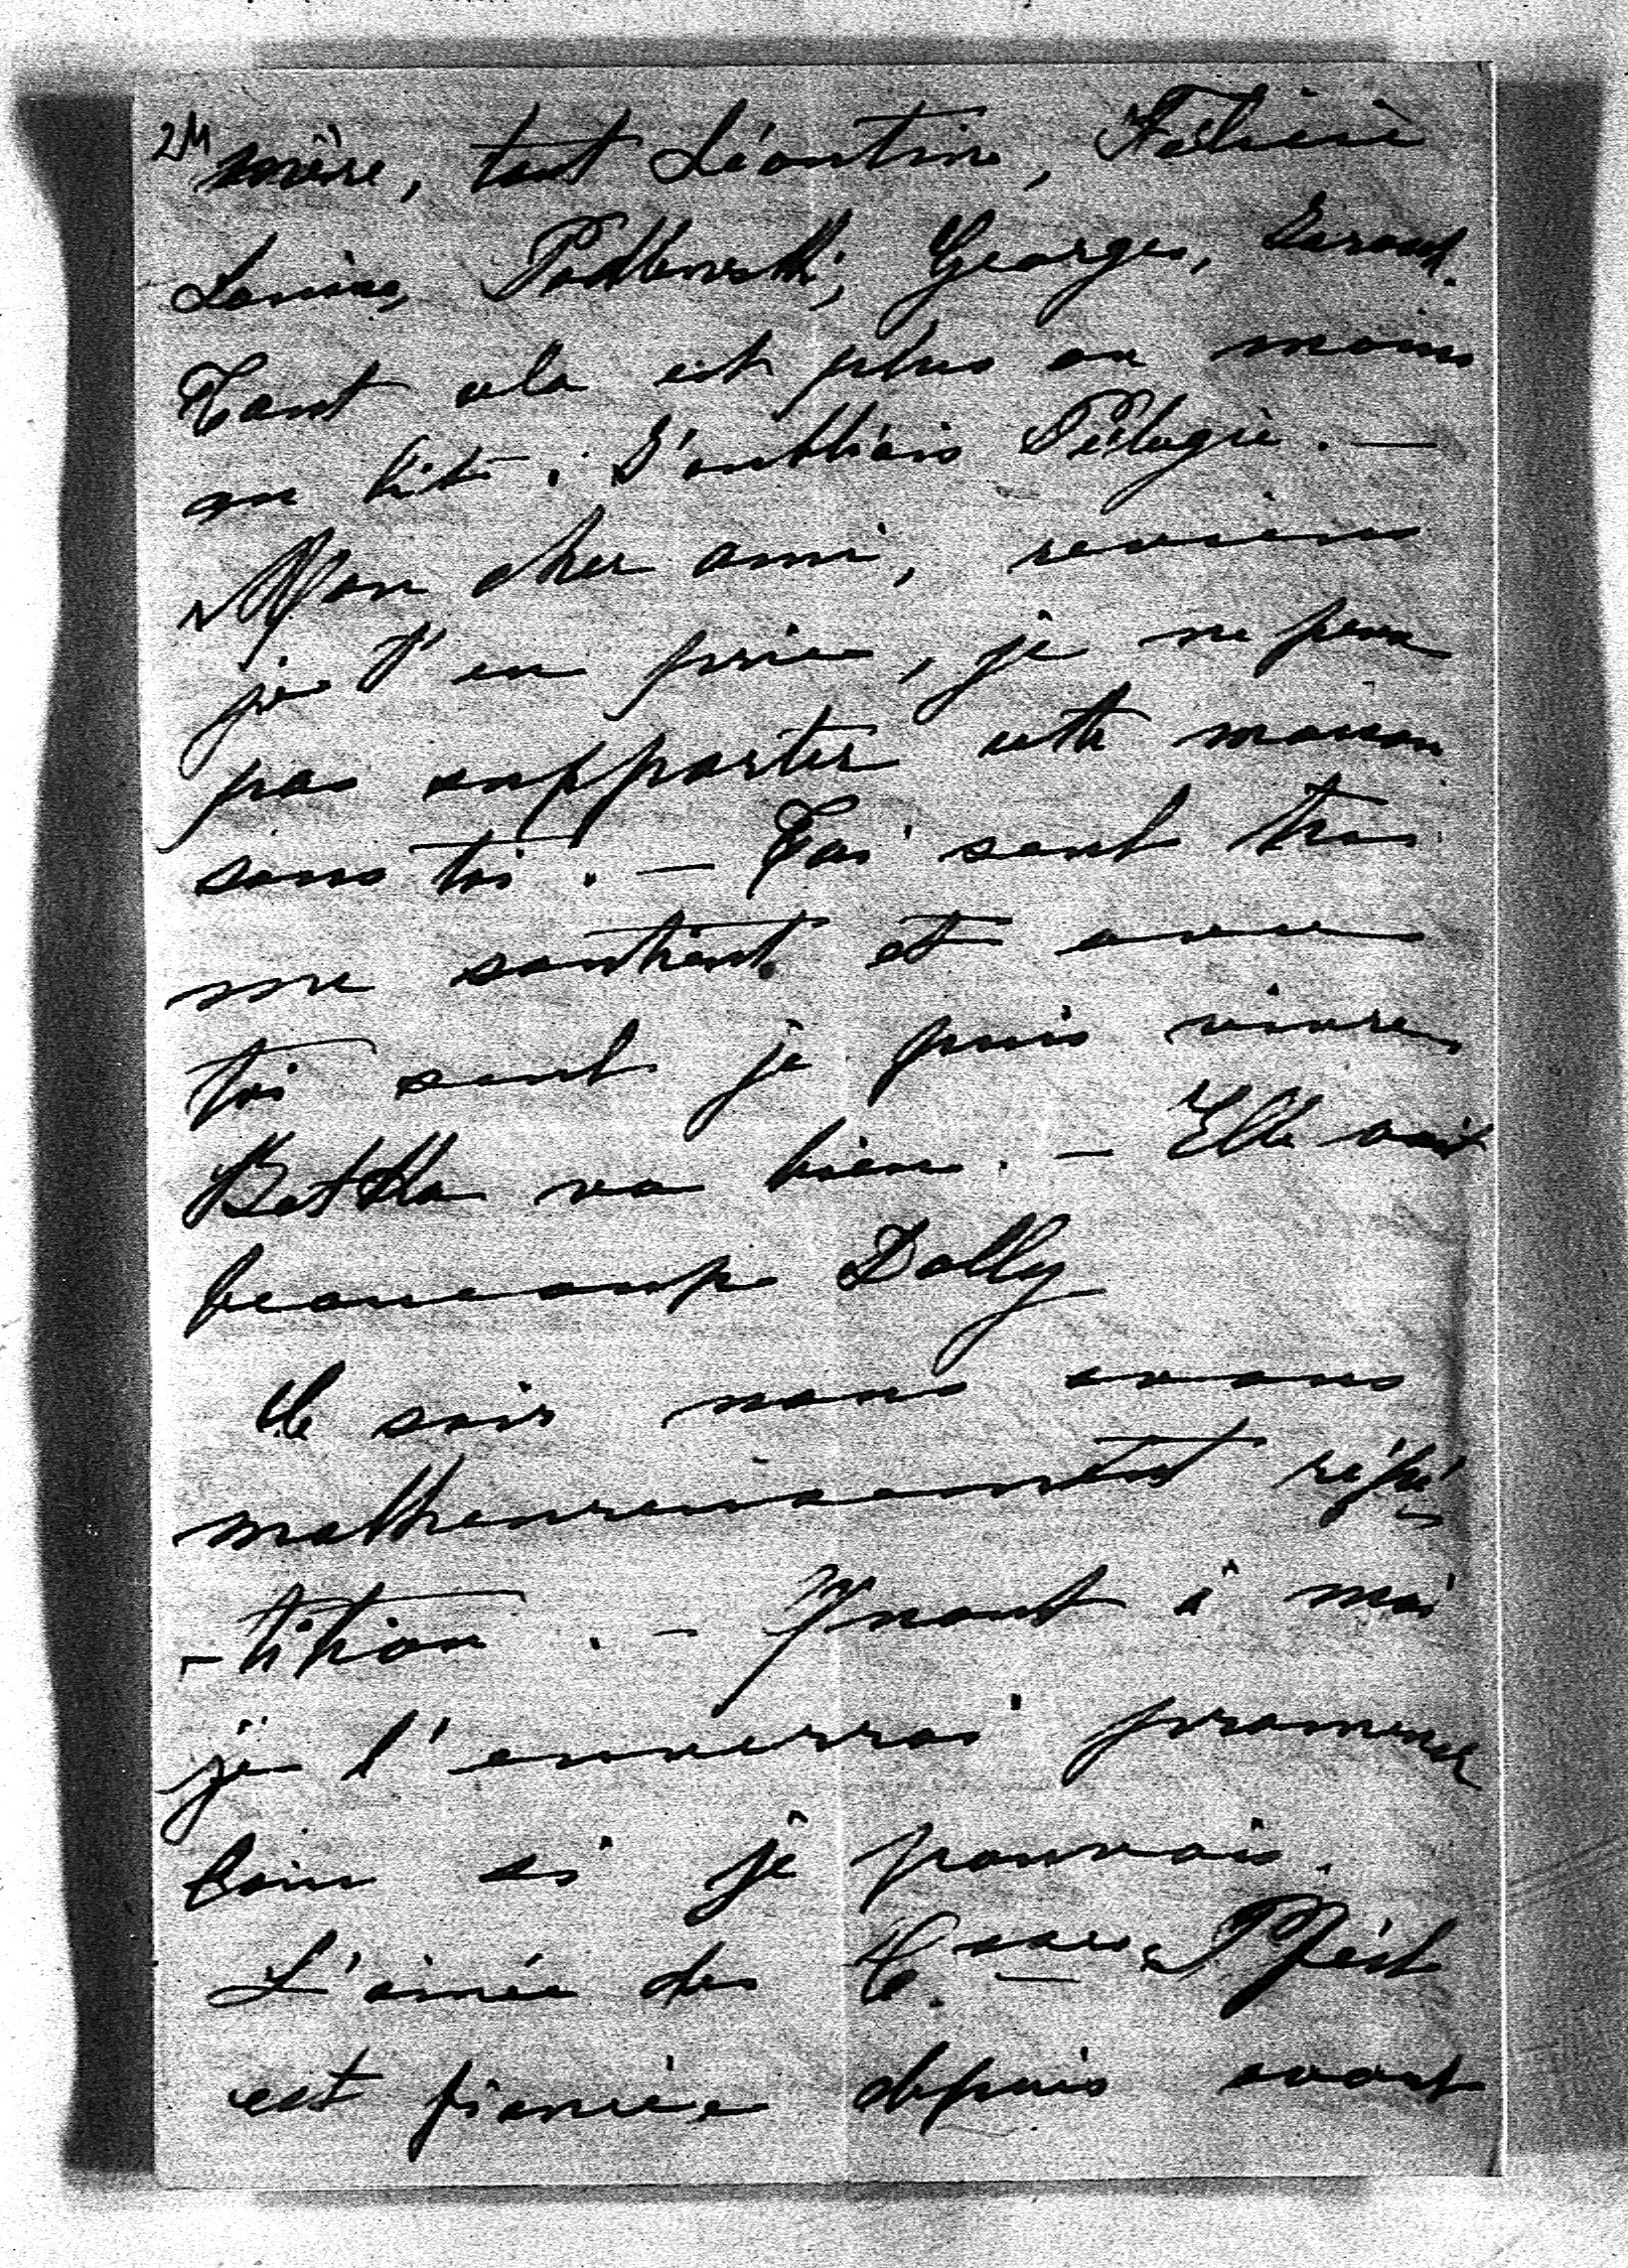 mère, tant Léontine, Félicie
Louise, Podlewski, Georges,
Tout cela est plus ou moins
au lit. J'oubliais Pélagie. —
Mon cher ami, reviens
je t'en prie, je ne peux
pas supporter cette maison
sans toi. — Toi seul
me soutient et avec
toi seul je puis vivre.
va bien. — Elle voit
beaucoup Dolly
Ce soir nous avons
malheureusement répé
-tition. — Quant à moi
je l'enverrai promener
loin si je pouvais.
L'aînée des
est fiancée depuis avant